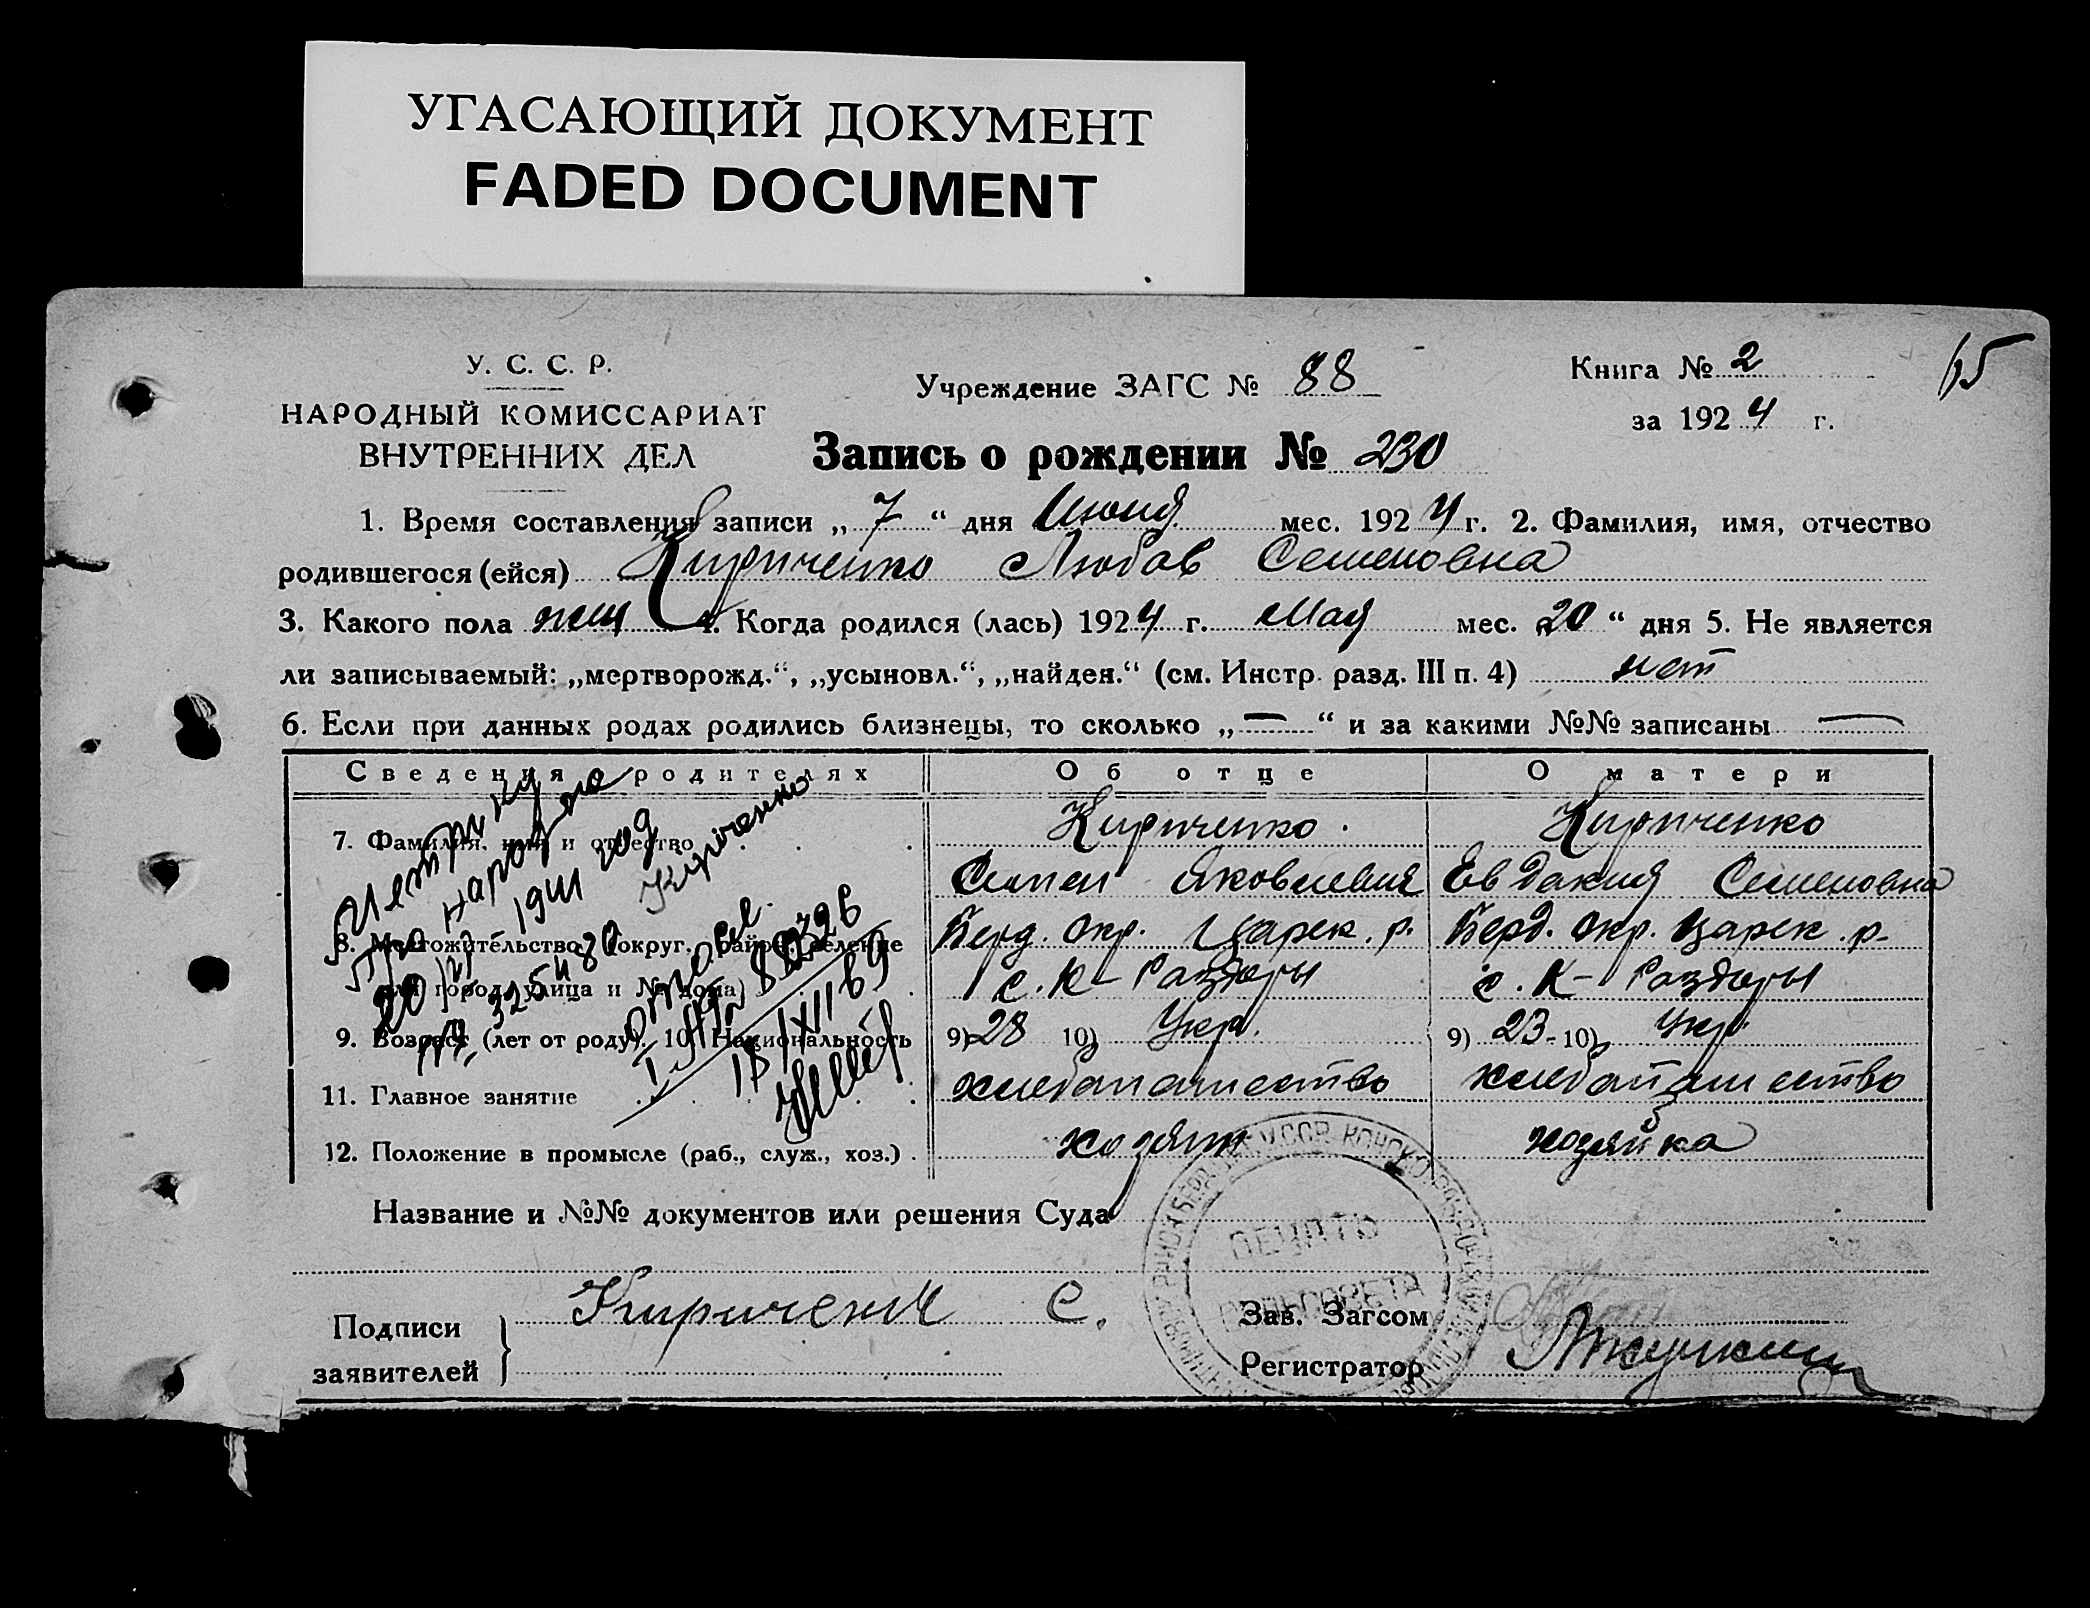 УГАСАЮЩИЙ ДОКУМЕНТ
FADED DOCUMENT
65
У. С. С. Р.
НАРОДНЫЙ КОМИССАРИАТ
ВНУТРЕННИХ ДЕЛ
Учреждение ЗАГС № 88
Книга № 2
за 1924 г.
Запись о рождении № 230
1. Время составления записи „ 7 “ дня Июня мес. 1924 г. 2. Фамилия, имя, отчество
родившегося (ейся) Кириченко Любов Семеновна
3. Какого пола жен 4. Когда родился (лась) 1924 г. Мая мес. 20 “ дня 5. Не является
ли записываемый: „мертворожд.“, „усыновл.“, „найден.“ (см. Инстр. разд. III п. 4) нет
6. Если при данных родах родились близнецы, то сколько „ — “ и за какими №№ записаны —
Сведения о родителях Об отце О матери
7. Фамилия, имя и отчество Кириченко Кириченко
Семен Яковлевич Евдакия Семеновна
8. Местожительство (округ, район, селение Берд. Окр. Царек. р. Берд. Окр. Царек. р.
или город, улица и № дома) с. К-Раздоры с. К-Раздоры
9. Возраст (лет от роду). 10. Национальность 9) 28 10) Укр. 9) 23 10) Укр.
11. Главное занятие хлебопашество хлебопашество
12. Положение в промысле (раб., служ., хоз.) хозяин хозяйка
Метрику
1941 год
Кириченко
18/XII 69
Название и №№ документов или решения Суда
ПЕЧАТЬ
Подписи
заявителей
Кириченк С.
Зав. Загсом
Регистратор